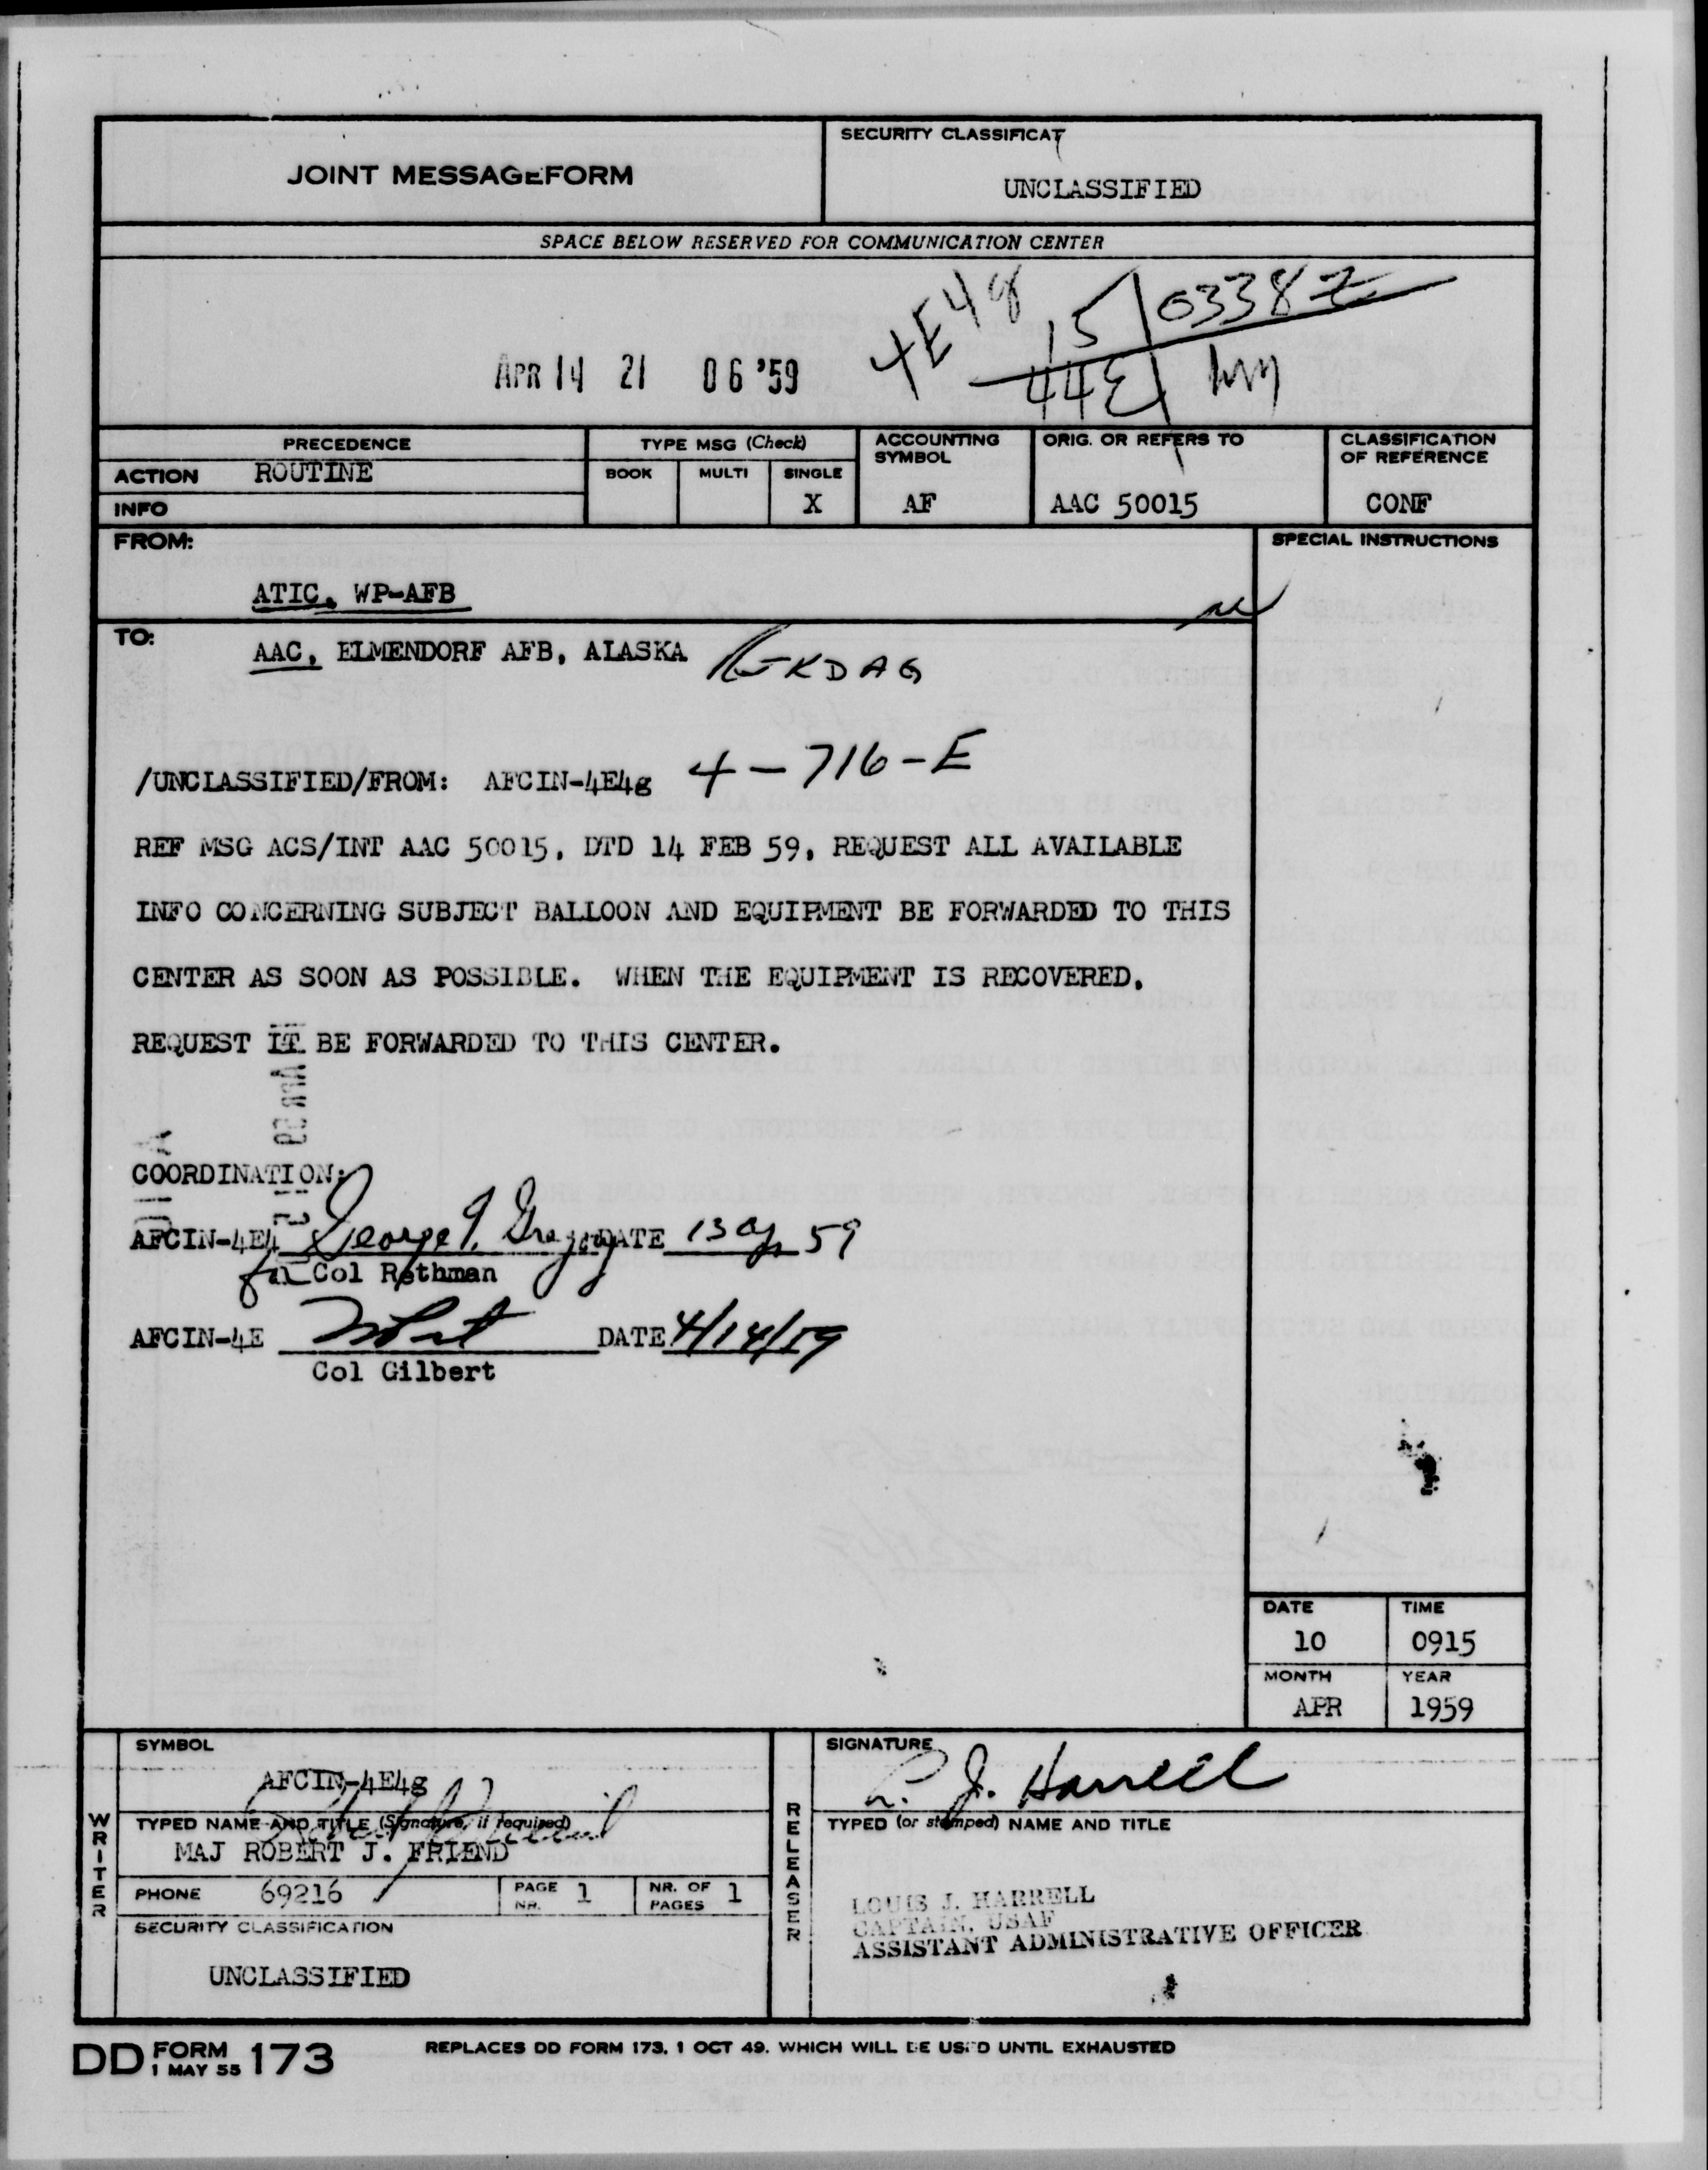 JOINT MESSAGEFORM
SECURITY CLASSIFICAT
UNCLASSIFIED
SPACE BELOW RESERVED FOR COMMUNICATION CENTER
4E4g
15/0338Z
44E
APR 14 21 06 '59
PRECEDENCE
ACTION ROUTINE
INFO
TYPE MSG (Check)
BOOK MULTI SINGLE
X
ACCOUNTING SYMBOL
AF
ORIG. OR REFERS TO
AAC 50015
CLASSIFICATION OF REFERENCE
CONF
FROM:
ATIC, WP-AFB
SPECIAL INSTRUCTIONS
TO:
AAC, ELMENDORF AFB, ALASKA
/UNCLASSIFIED/FROM: AFCIN-4E4g 4-716-E
REF MSG ACS/INT AAC 50015, DTD 14 FEB 59, REQUEST ALL AVAILABLE
INFO CONCERNING SUBJECT BALLOON AND EQUIPMENT BE FORWARDED TO THIS
CENTER AS SOON AS POSSIBLE. WHEN THE EQUIPMENT IS RECOVERED,
REQUEST IT BE FORWARDED TO THIS CENTER.
COORDINATION:
AFCIN-4E4 George T. Gregory DATE 13 Ap 59
for Col Rothman
AFCIN-4E DATE 4/14/59
Col Gilbert
DATE
10
TIME
0915
MONTH
APR
YEAR
1959
WRITER
SYMBOL
AFCIN-4E4g
TYPED NAME AND TITLE (Signature, if required)
MAJ ROBERT J. FRIEND
PHONE 69216
PAGE NR. 1
NR. OF PAGES 1
SECURITY CLASSIFICATION
UNCLASSIFIED
RELEASER
SIGNATURE
L. J. Harrell
TYPED (or stamped) NAME AND TITLE
LOUIS J. HARRELL
CAPTAIN, USAF
ASSISTANT ADMINISTRATIVE OFFICER
DD FORM 1 MAY 55 173
REPLACES DD FORM 173, 1 OCT 49, WHICH WILL BE USED UNTIL EXHAUSTED